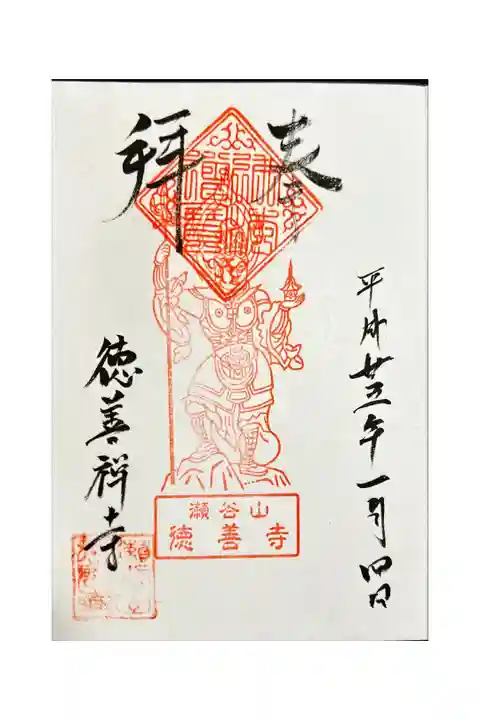 奉拝
平成廿年一月四日
瀬谷山
徳善寺
徳善禅寺